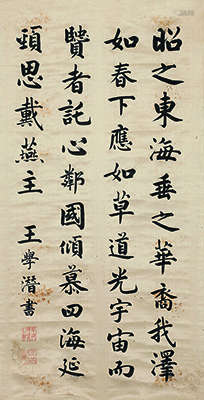 昭之東海垂之華裔我澤
如春下應如草道光宇宙而
賢者託心鄰國傾慕四海延
頸思戴燕主 王學潛書